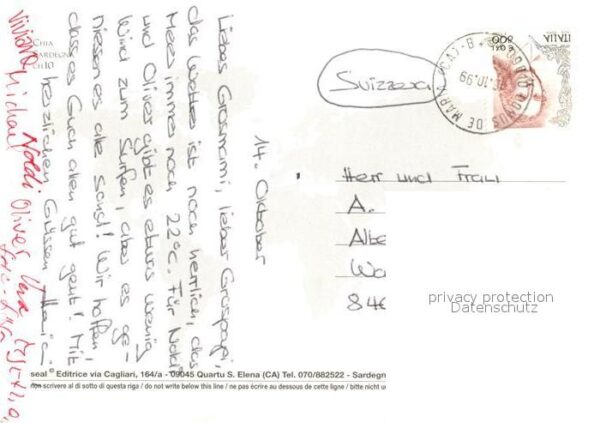 CHIA
SARDEGNA
CH10
14. Oktober
Liebes Grosmami, lieber Grospapi,
das Wetter ist noch herrlich, das
Meer immer noch 22°C. Für Noldi
und Oliver gibt es etwas wenig
Wind zum Surfen, aber es ge-
niessen es alle sonst! Wir hoffen,
dass es Euch allen gut geht! Mit
herzlichen Grüssen
Viviane
Michael Noldi Oliver
Svizzera
ITALIA
800
Herr und Frau
A.
Albe
Wa
840
privacy protection
Datenschutz
seal ® Editrice via Cagliari, 164/a - 09045 Quartu S. Elena (CA) Tel. 070/882522 - Sardegn
non scrivere al di sotto di questa riga / do not write below this line / ne pas écrire au dessous de cette ligne / bitte nicht u